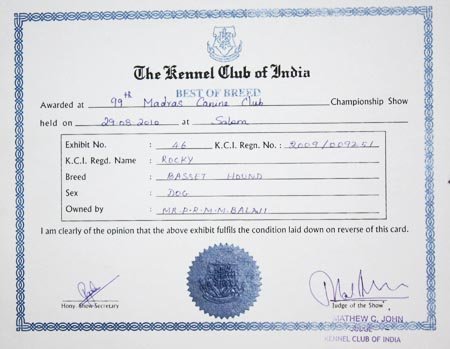 The Kennel Club of India
BEST OF BREED
Awarded at 99th Madras Canine Club Championship Show
held on 29.08.2010 at Salem
Exhibit No. : 46 K.C.I. Regn. No. : 2009/009251
K.C.I. Regd. Name : ROCKY
Breed : BASSET HOUND
Sex : DOG
Owned by : MR.P.R.M.M.BALAJI
I am clearly of the opinion that the above exhibit fulfils the condition laid down on reverse of this card.
Hony. Show Secretary
Judge of the Show
MATHEW C. JOHN
JUDGE
KENNEL CLUB OF INDIA